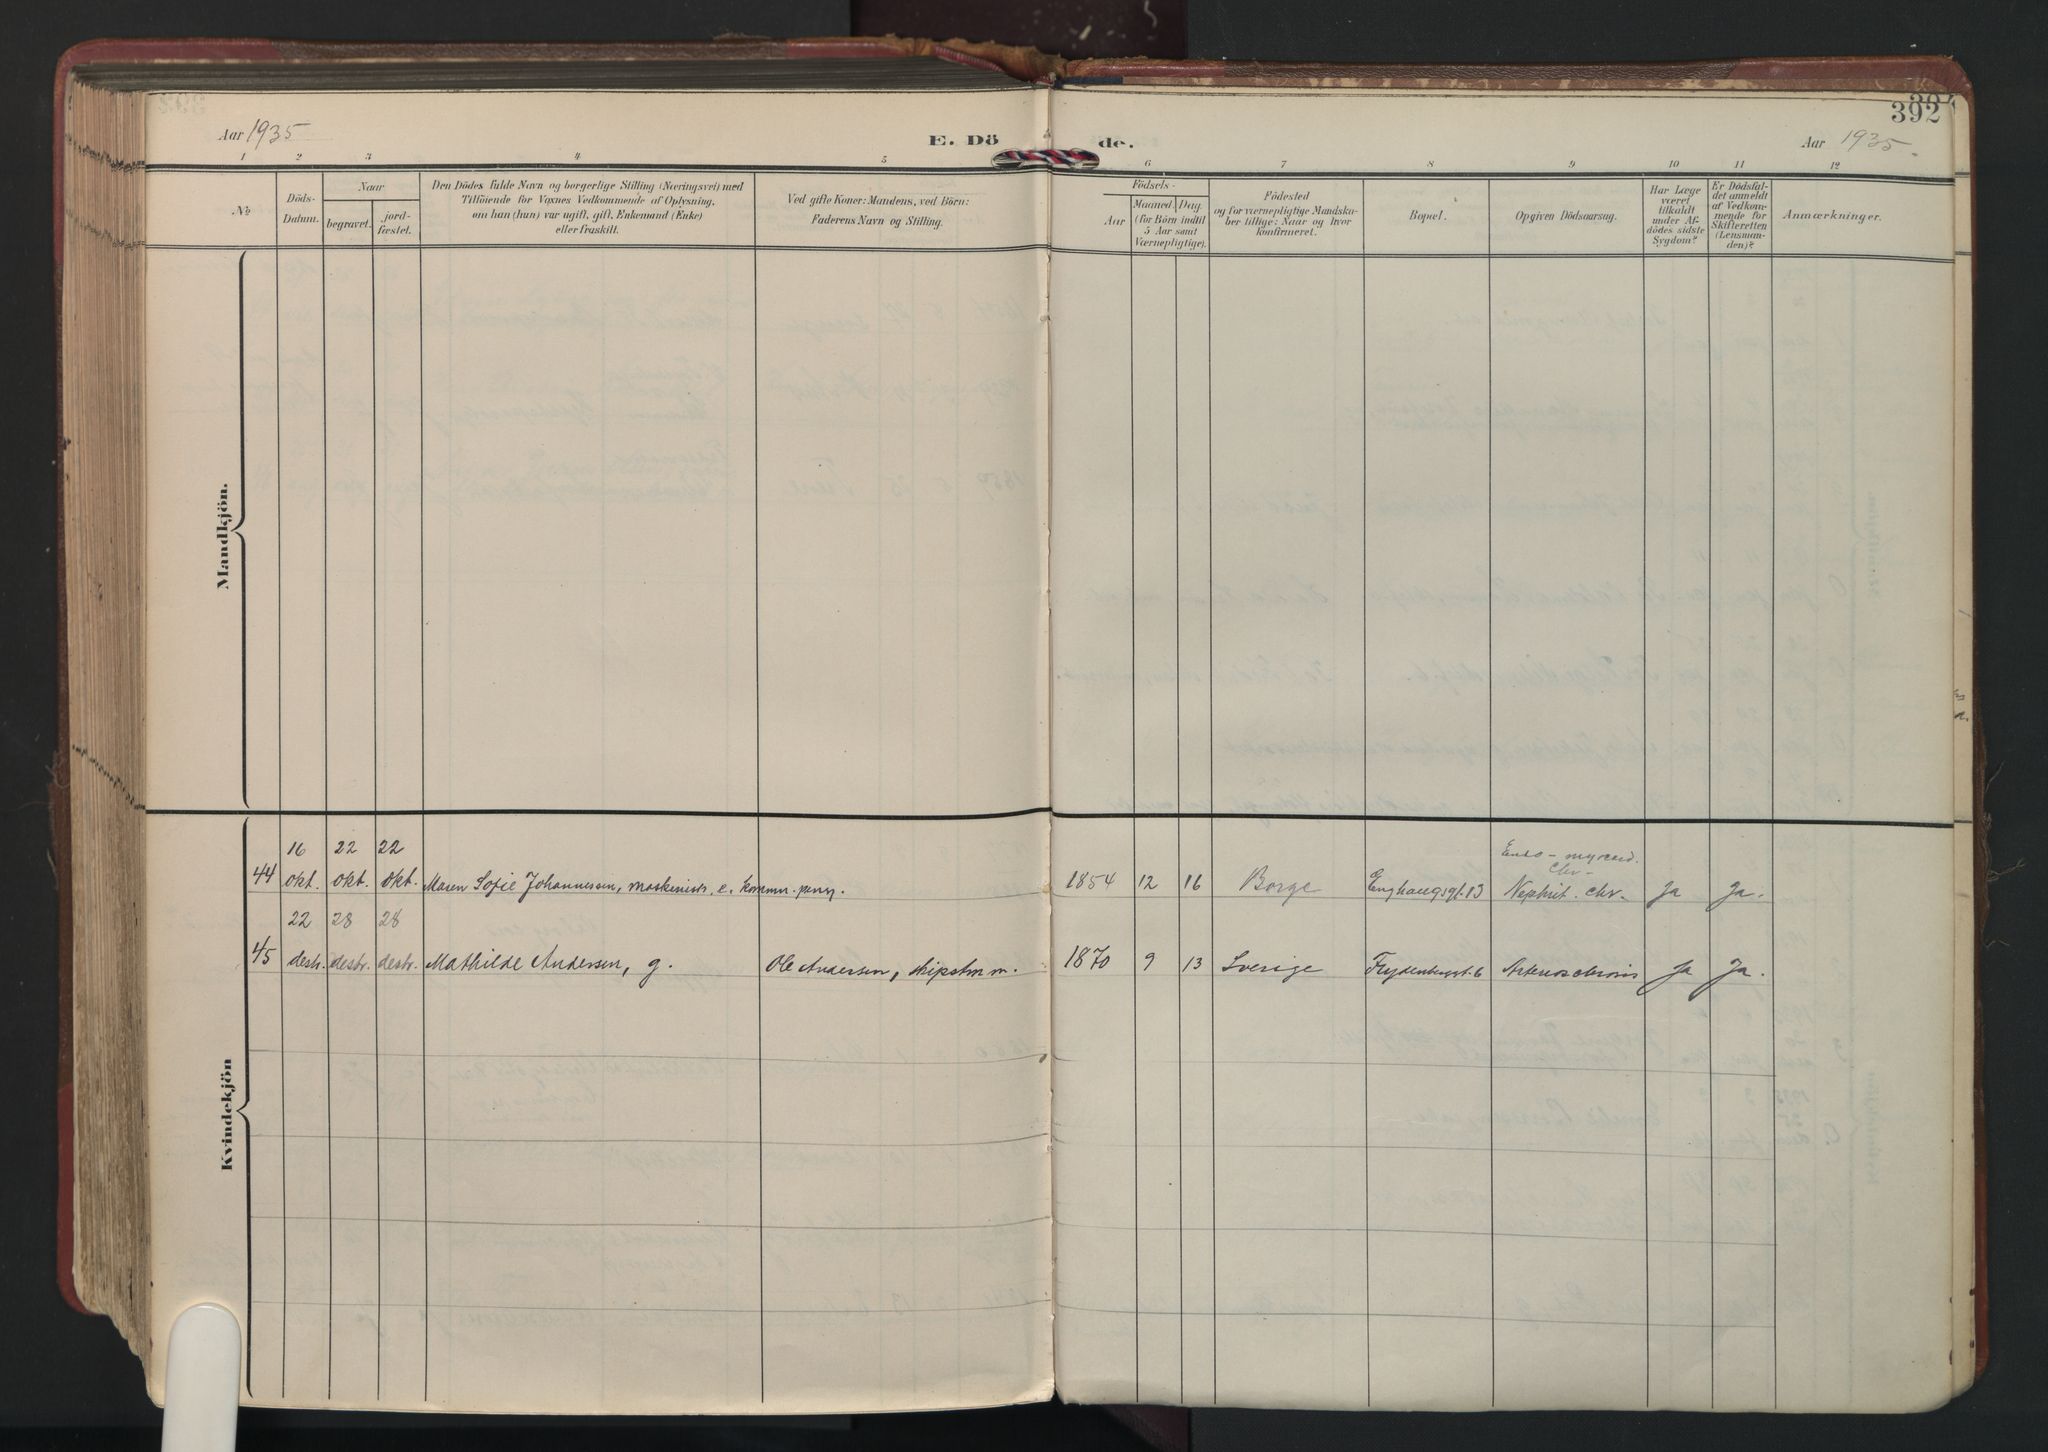 392
Aar 1935
E. Dö
de.
Aar 1935.
1 2 3 4 5 6 7 8 9 10 11 12
No
Döds-
Datum.
Naar
begravet.
jord-
fæstet.
Den Dödes fulde Navn og borgerlige Stilling (Næringsvei) med
Tilföiende for Voxnes Vedkommende af Oplysning,
om han (hun) var ugift, gift, Enkemand (Enke)
eller fraskilt.
Ved gifte Koner: Mandens, ved Börn:
Faderens Navn og Stilling.
Födsels-
Aar
Maaned.
Dag.
(for Börn indtil
5 Aar samt
Værnepligtige).
Födested
og for værnepligtige Mandska-
ber tillige: Naar og hvor
konfirmeret.
Bopæl.
Opgiven Dödsaarsag.
Har Læge
været
tilkaldt
under Af-
dödes sidste
Sygdom?
Er Dödsfal-
det anmeldt
af Vedkom-
mende for
Skifteretten
(Lensman-
den)?
Anmærkninger.
Mandkjön.
Kvindekjön
16 22 22
Endo - myocard.
chr -
44 okt. okt. okt. Maren Sofie Johannessen, maskinists e. komm. pens. 1854 12 16 Borge Enghaugsgt. 13 Nephrit. chr. Ja Ja.
22 28 28
45 desbr. desbr. desbr. Mathilde Andersen, g. Ole Andersen, skipstm m. 1870 9 13 Sverige Frydenbergst. 6 Arteriosclerosis Ja Ja.